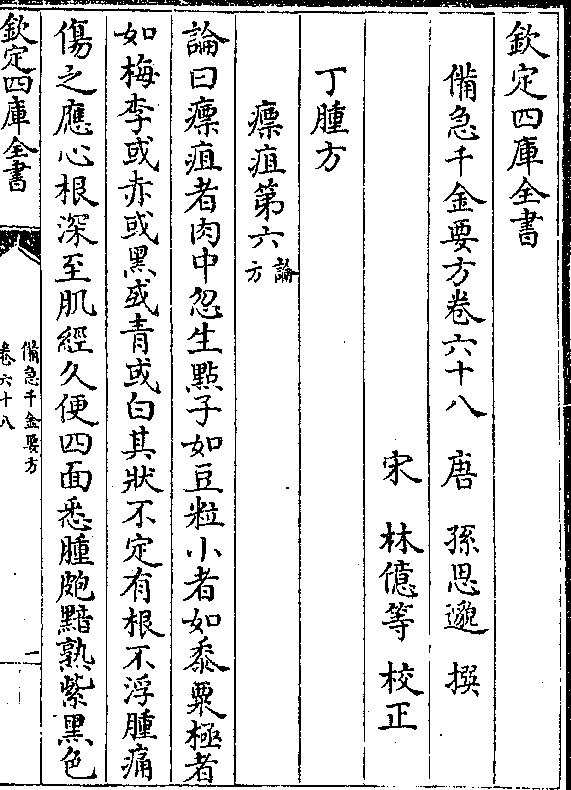 欽定四庫全書
備急千金要方卷六十八 唐 孫思邈 撰
宋 林億等 校正
丁腫方
瘭疽第六論方
論曰瘭疽者肉中忽生點子如豆粒小者如黍粟極者
如梅李或赤或黑或青或白其狀不定有根不浮腫痛
傷之應心根深至肌經久便四面悉腫皰黯熟紫黑色
欽定四庫全書
備急千金要方
卷六十八
一